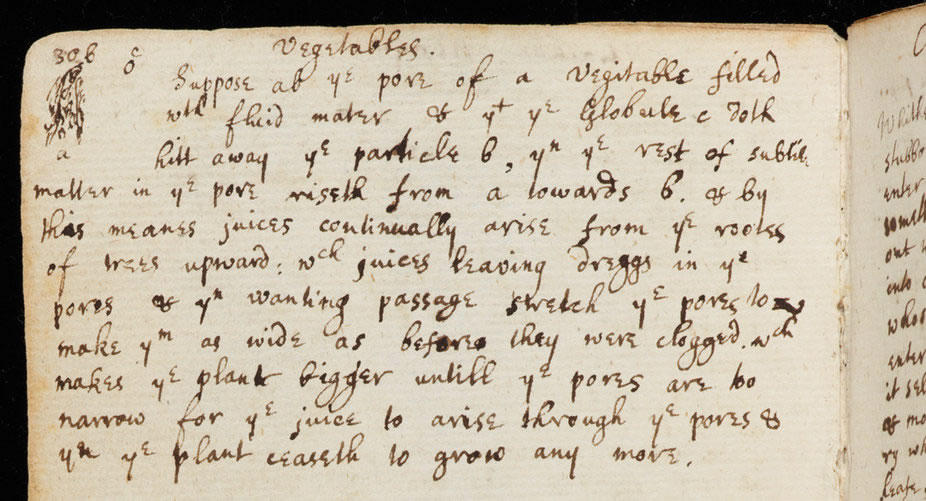 306 c Vegetables.
o Suppose ab yͤ pore of a Vegitable filled
b
wth fluid mater & yt yͤ Globule c doth
a hitt away yͤ particle b, yn yͤ rest of subtile
matter in yͤ pore riseth from a towards b. & by
this meanes juices continually arise from yͤ rootes
of trees upward: wch juices leaving dreggs in yͤ
pores & yn wanting passage stretch yͤ pores to
make ym as wide as before they were clogged. wch
makes yͤ plant bigger untill yͤ pores are too
narrow for yͤ juice to arise through yͤ pores &
yn yͤ plant ceaseth to grow any more.
enter
out
into
whos
enter
it sel